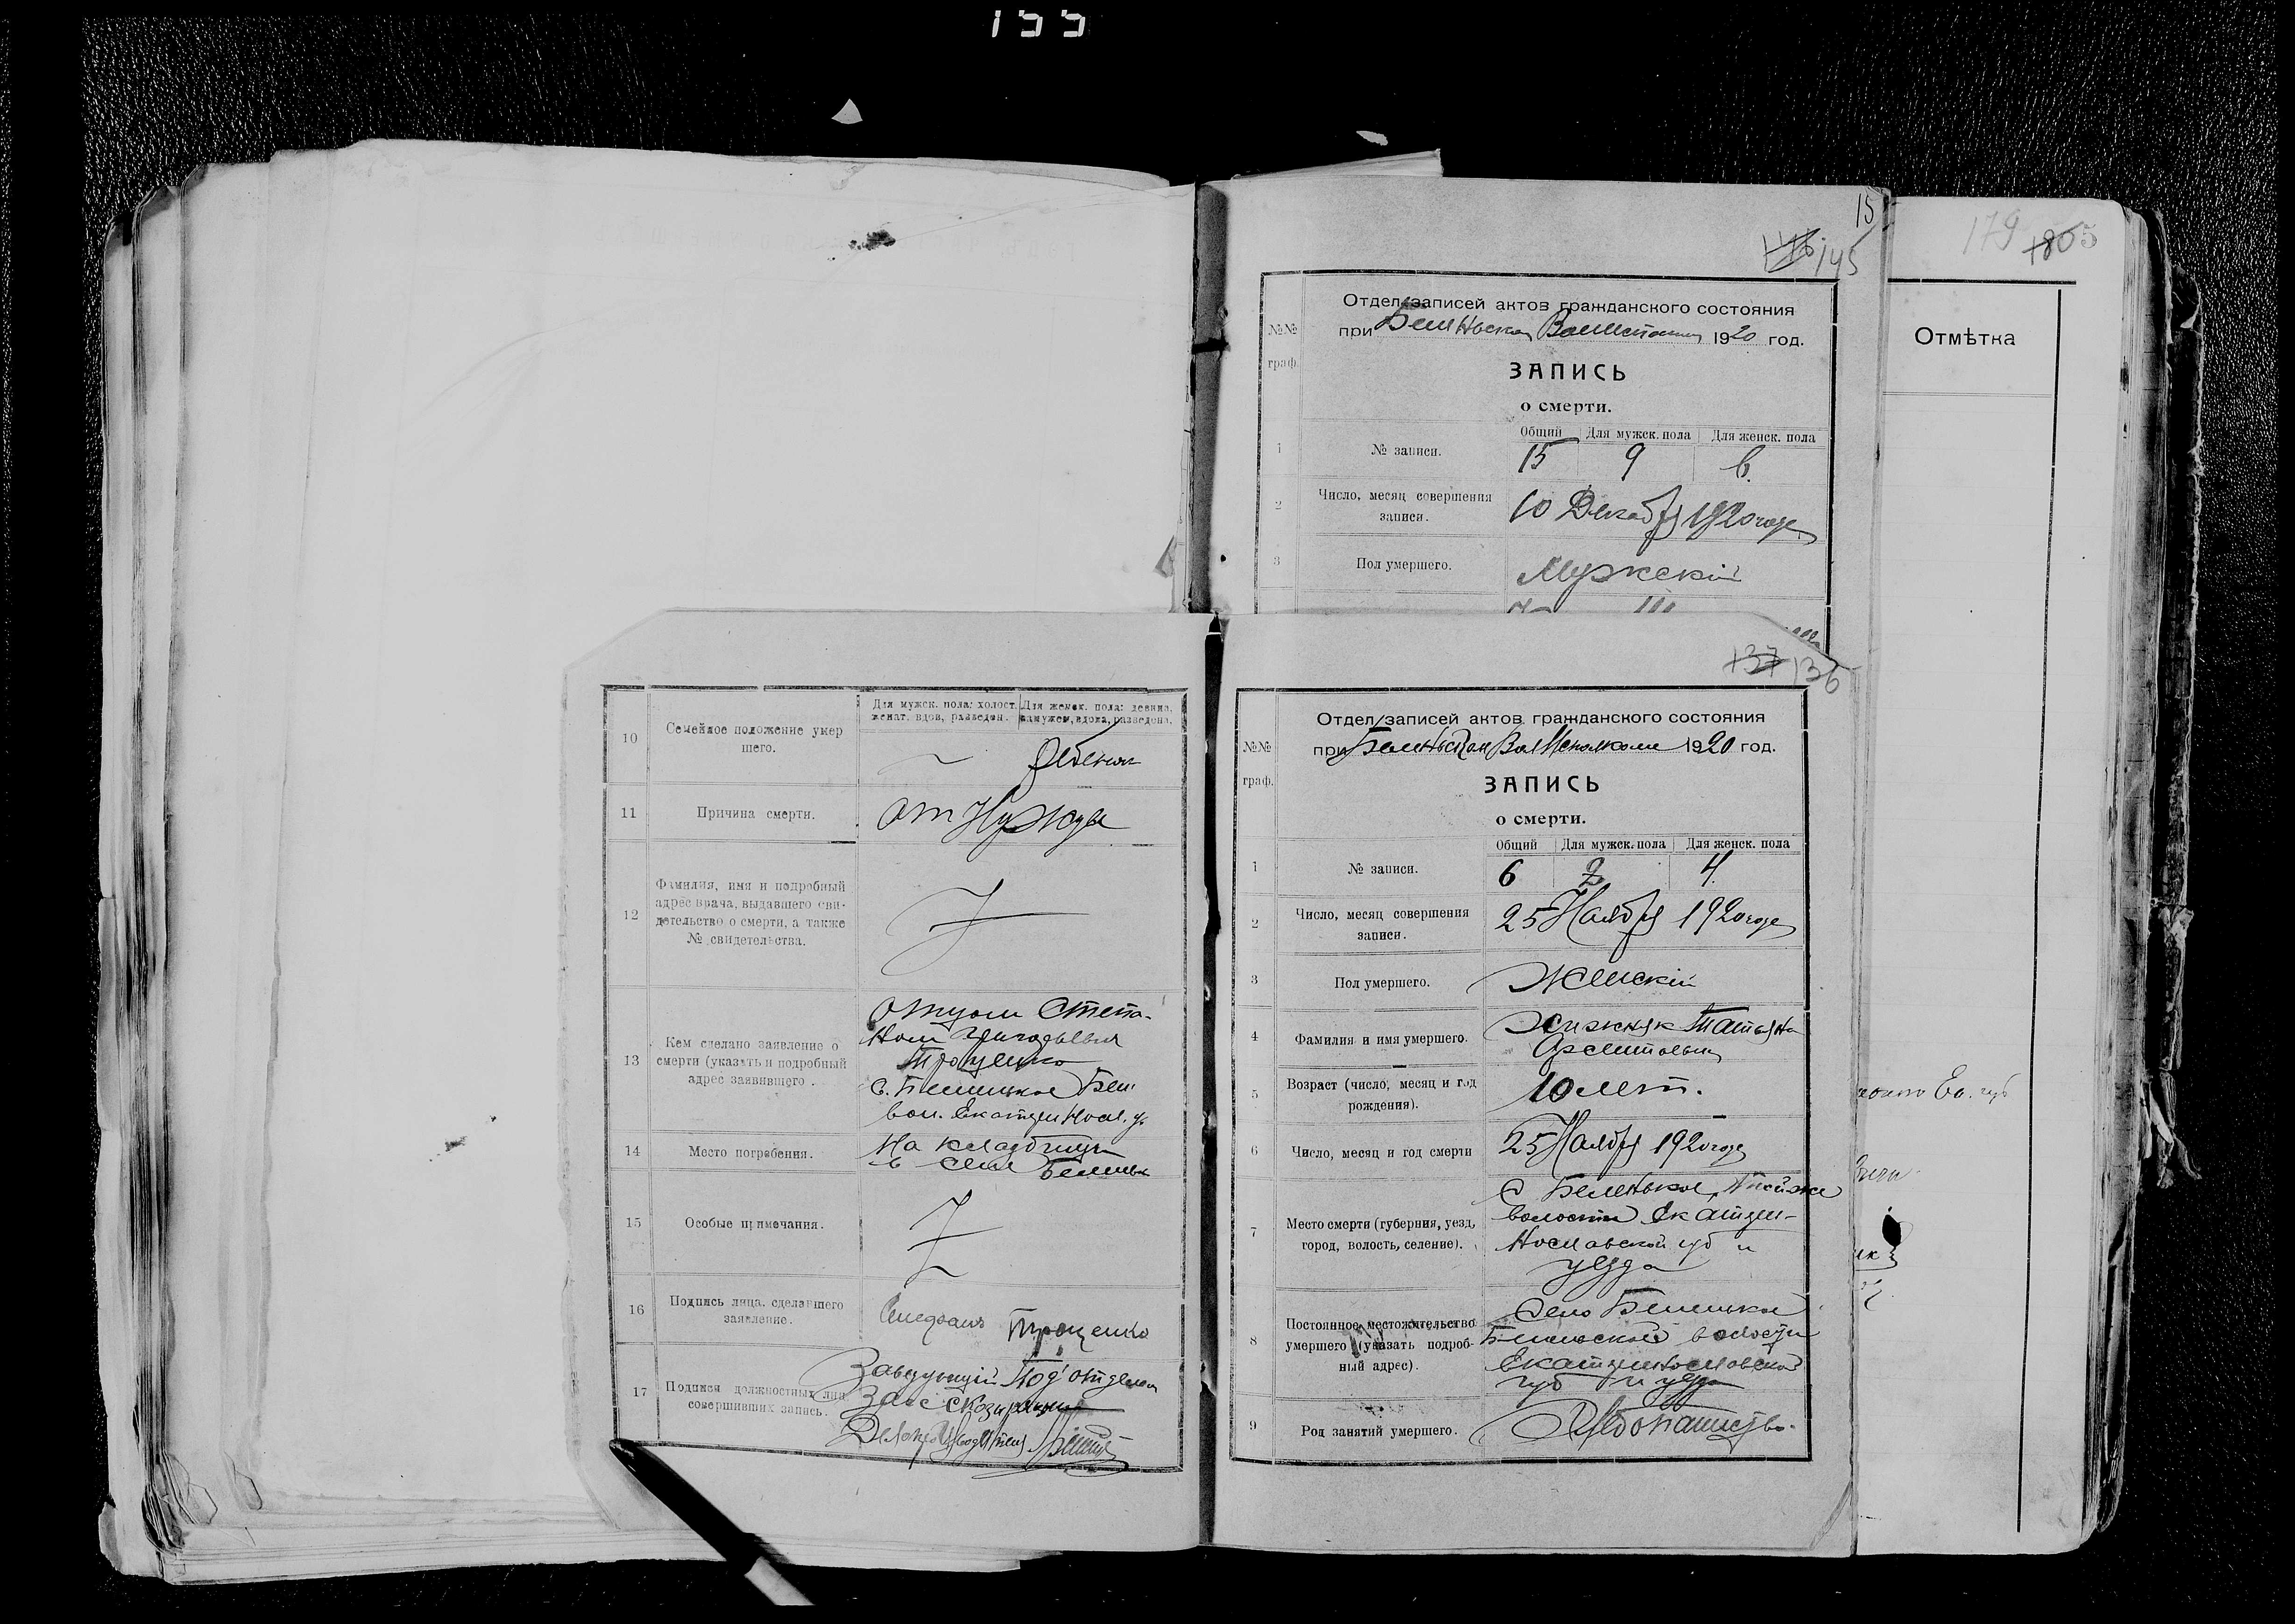 155
179 1805
Отмѣтка
15
146 145
Отдел записей актов гражданского состояния
при 1920 год.
№№
граф.
ЗАПИСЬ
о смерти.
Общий Для мужск. пола Для женск. пола
1 № записи. 15 9 6.
2 Число, месяц совершения
записи.
10 Декабря 1920 года
3 Пол умершего. Мужскій
137 136
10 Семейное положение умер
шего.
Для мужск. пола: холост. Для женск. пола: девица,
женат. вдов, разведен. замужем, вдова, разведена.
ребенок
11 Причина смерти.
12 Фамилия, имя и подробный
адрес врача, выдавшего сви-
детельство о смерти, а также
№ свидетельства.
13 Кем сделано заявление о
смерти (указать и подробный
адрес заявившего.
отцом Степа-
ном
Троценко
с. Беленькое Бел.
вол. Екатеринослав. у.
14 Место погребения.
На кладбище
в селе Беленьк
15 Особые примечания.
16 Подпись лица, сделавшего
заявление.
Троценко
17 Подписи должностных лиц
совершивших запись.
Заведующий Под отделом
Загс
Отдел записей актов гражданского состояния
при 1920 год.
№№
граф.
ЗАПИСЬ
о смерти.
Общий Для мужск. пола Для женск. пола
1 № записи. 6 2 4.
2 Число, месяц совершения
записи.
25 Ноября 1920 года
3 Пол умершего. Женскій
4 Фамилия и имя умершего.
Хижняк Татьяна
5 Возраст (число, месяц и год
рождения).
10 лет.
6 Число, месяц и год смерти
25 Ноября 1920 года
7 Место смерти (губерния, уезд,
город, волость, селение).
с Беленькое
волости Екатери-
нославской губ и
уезда
8 Постоянное местожительство
умершего (указать подроб-
ный адрес).
Село Беленькое
волости
Екатеринославской
губ и уезда
9 Род занятий умершего.
Хлебопашество.